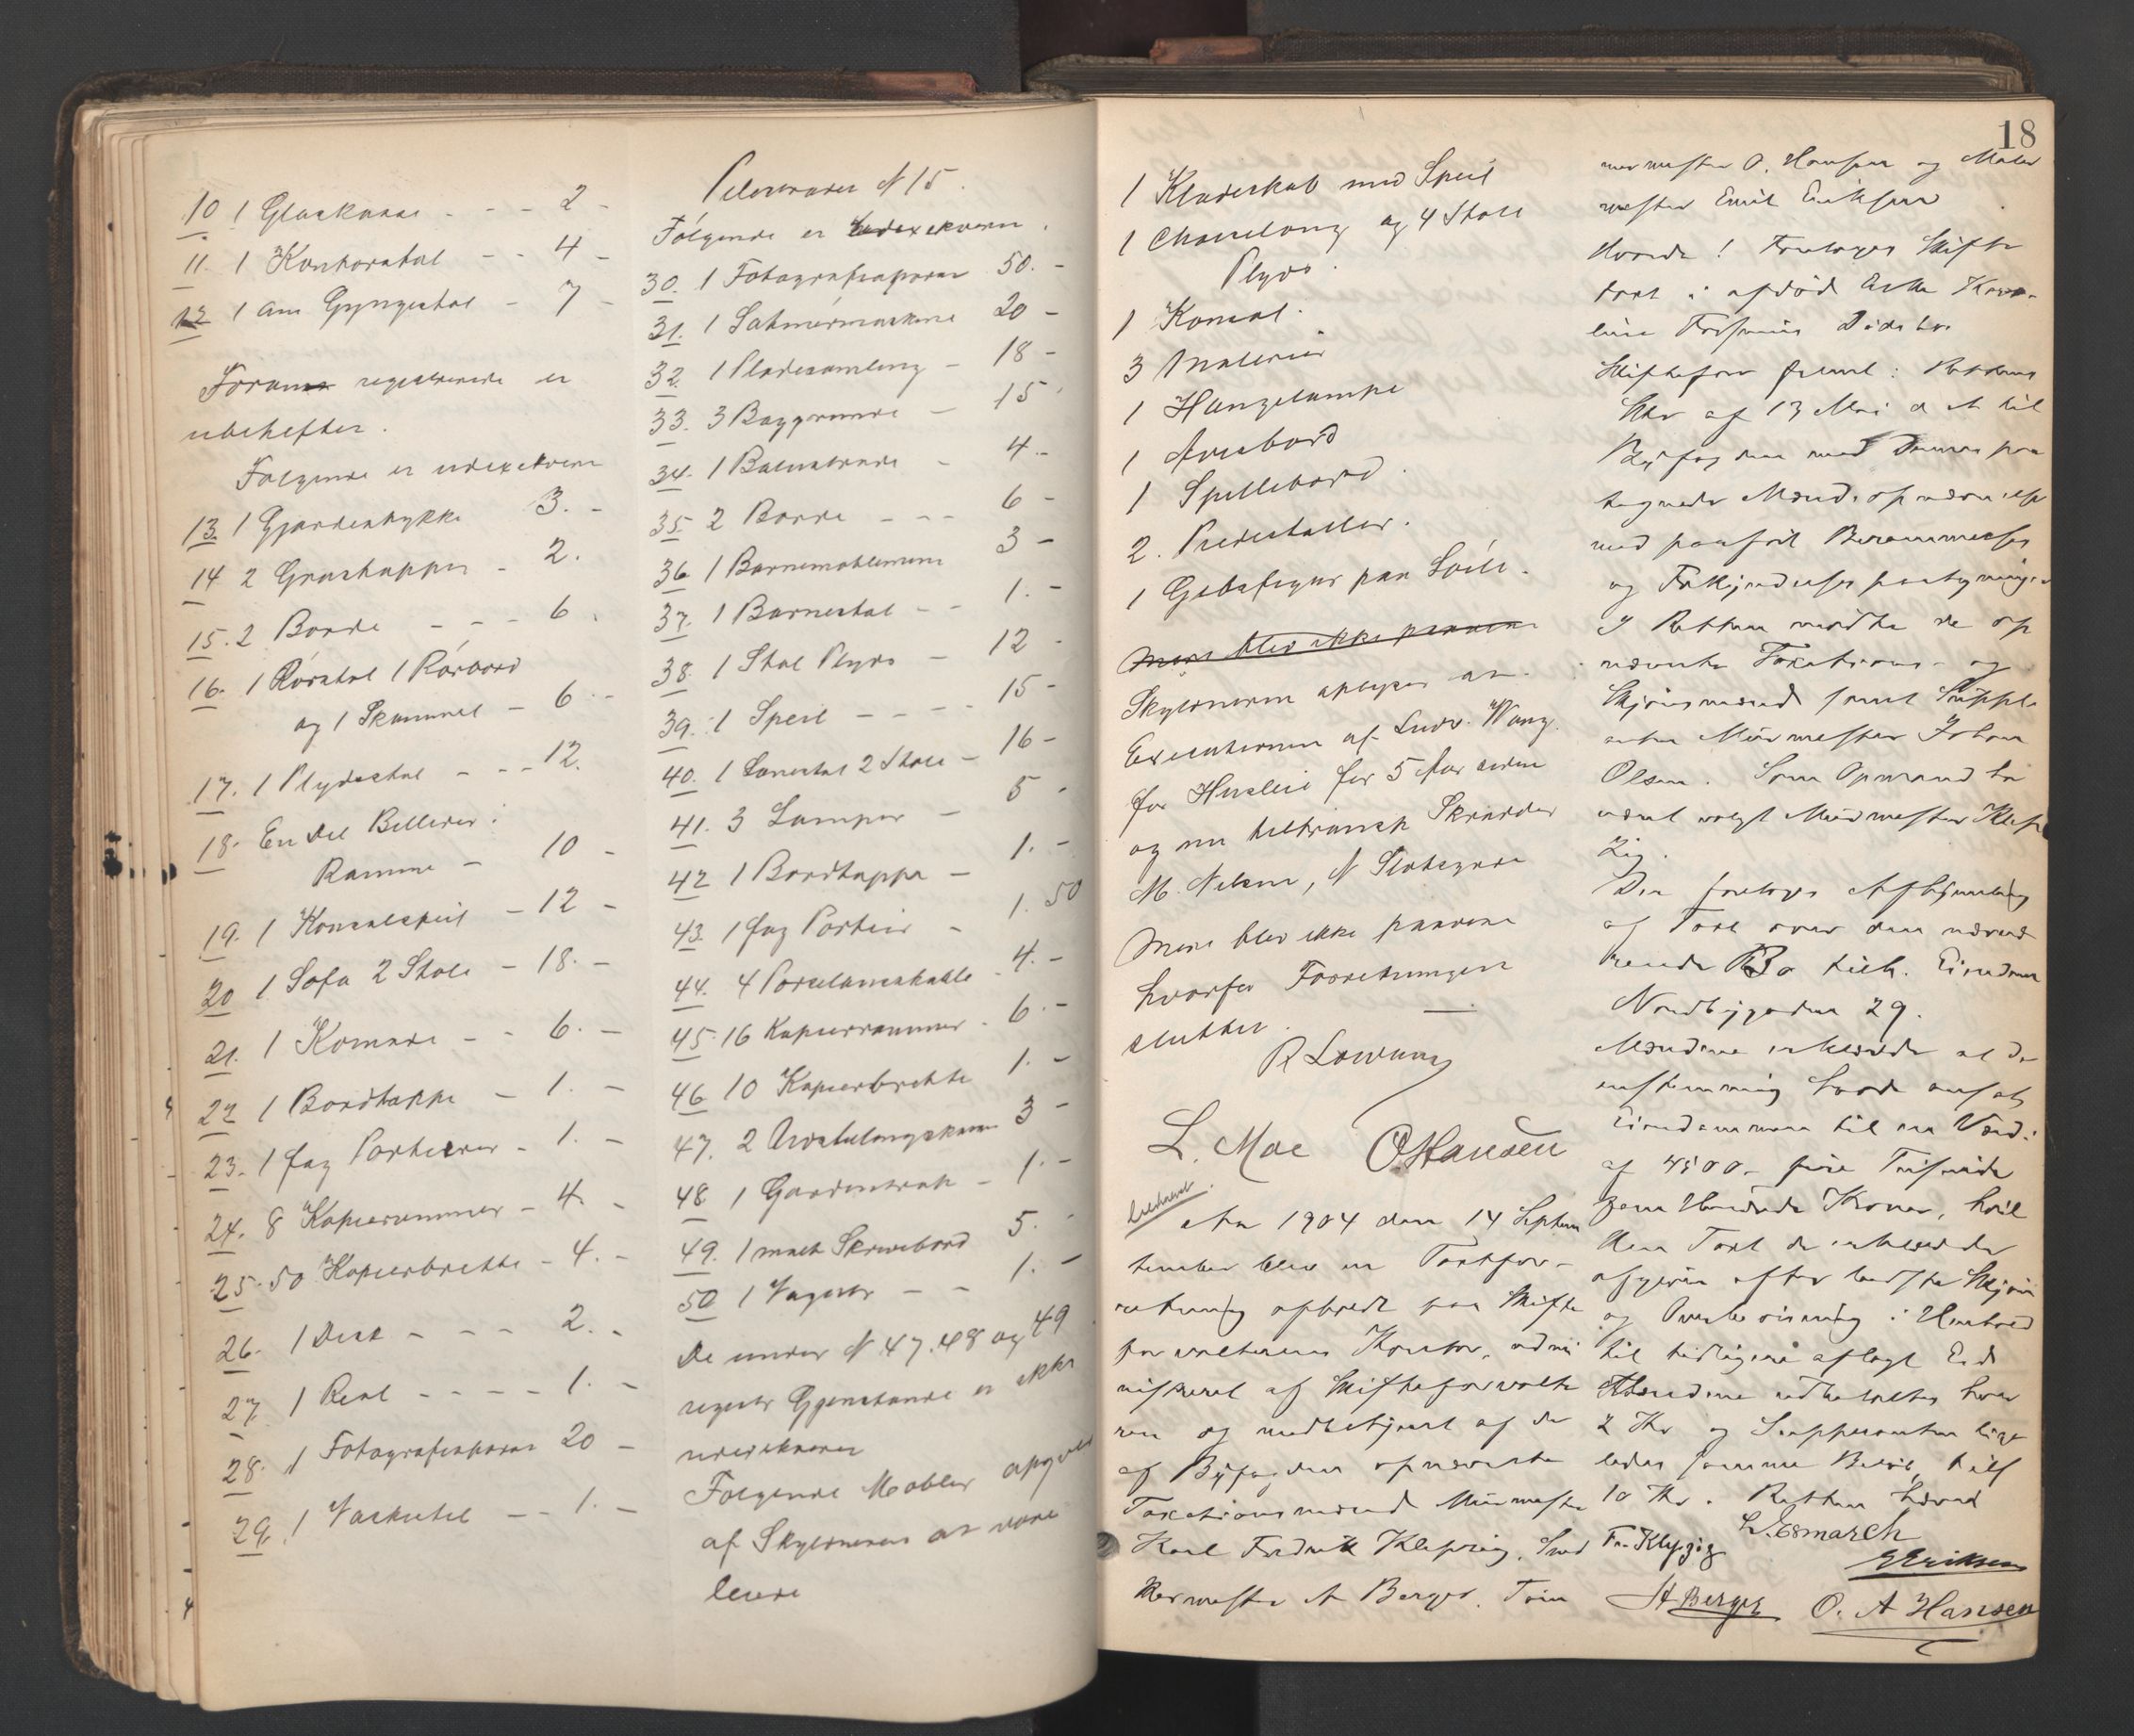 10 1 Glaskasse - - - 2 -
11. 1 Kontorstol - - 4 -
12 1 Am Gyngestol - 7 -
Foran registrerede er
ubeheftet.
Følgende er udexekveret
13. 1 Gjardenstykke 3. -
14 2 Grastæpper - 2.
15. 2 Borde - - - 6.
16. 1 Rørstol 1 Rørbord
og 1 Skammel - 6 - -
17. 1 Plydsstol - - - 12.
18. En Del Billeder i
Ramme - 10 -
19. 1 Konsolspeil - 12 -
20 1 Sofa 2 Stole - 18. -
21. 1 Komode - - 6. -
22 1 Bordtæppe - 1. -
23. 1 fag Portierer - 1. -
24. 8 Kopierammer - 4. -
25. 50 Kopierbrette - 4. -
26. 1 Disk - - - 2. -
27. 1 Reol - - - - 1. -
28. 1 Fotografiaparat 20 -
29. 1 - - 1. -
N 15.
Følgende er udexekveret
30. 1 Fotografiaparat 50. -
31. 1 Satinérmaskine 20 -
32. 1 Pladesamling - 18 -
33. 3 Baggrunde - 15
34. 1 Balustrade - 4. -
35. 2 Borde - - - 6 -
36. 1 3 -
37. 1 Barnestol - - 1. -
38. 1 Stol Plyds - 12 -
39. 1 Speil - - - - 15 -
40. 1 Lænestol 2 Stole - 16 -
41. 3 Lamper - 5 -
42 1 Bordtæppe - 1. -
43. 1 fag Portier - 1. 50
44. 4 - 4. -
45. 16 Kopierrammer - 6. -
46 10 Kopierbrette 1. -
47. 2 Udstillingskasser 3 -
48 1 Gardintrap - 1. -
49. 1 malt Skrivebord 5. -
50 1 - - 1. -
De under N 47. 48 og 49
registr Gjenstande er ikke
udexekveret
Følgende Møbler opgives
af Skyldneren at være
leiede
18
1 Klædeskab med Speil
1 Chaiselong og 4 Stole
Plyds.
1 Konsol.
3 Malerier
1 Hængelampe
1
1 Spillebord.
2. Piedestaller.
1 Gibsfigur paa Søile.
Mere blev ikke paavist
Skyldneren oplyser at
Executionen af Ludv. Wang
for Husleie for 5 Aar siden
og nu tiltransp. Skrædder
M. Nelsen, N Slotsgade
Mere blev ikke paavist
hvorfor Forretningen
sluttet.
R Lowum
L. Moe O. Hansen
Aar 1904 den 14 Septem
tember blev en Taxtfor-
retning afholdt paa Skifte
forvalterens Kontor, admi
nistreret af Skifteforvalte
ren og medbetjent af de
af Byfogden opnævnte
Taxationsmænd Murmester
Karl Fredrik Klepzig, Sned
kermester A Berger, Tøm
mermester O. Hansen og Maler
mester Emil Eriksen
Hvorda! Foretoges Skifte
taxt i afdød Enke Karo-
line Dødsbo
Skifteforv freml: Rettens
Skr af 13 Mai d A til
Byfogden med Dennes paa
tegnede Mændsopnævnelse
med paaført Berammelses
og Forkyndelses paategninger
I Retten mødte de op
nævnte Taxations- og
Skjønsmænd samt Supple
anten Murmester Johan
Olsen. Som Opmand be
valgt Murmester Klep
zig.
Der foretoges Afhjemling
af Taxt over den nærvæ
rende Bo tilh. Eiendom
Nordbygaden 29.
Mændene erklærede at de
enstemmig havde ansat
Eiendommen til en Værdi
af 4500.- fire Tusinde
fem Hundrede Kroner, hvil
ken Taxt de erklærede
afgiven efter bedste Skjøn
og Overbevisning i Henhold
til tidligere aflagt Ed.
Mændene udbetaltes hver
2 Kr og Suppleanten lige
ledes samme Beløb, tils
10 Kr. Retten hævet
L. Esmarch
Fr. Klepzig
E Eriksen
A Berger O. A Hansen